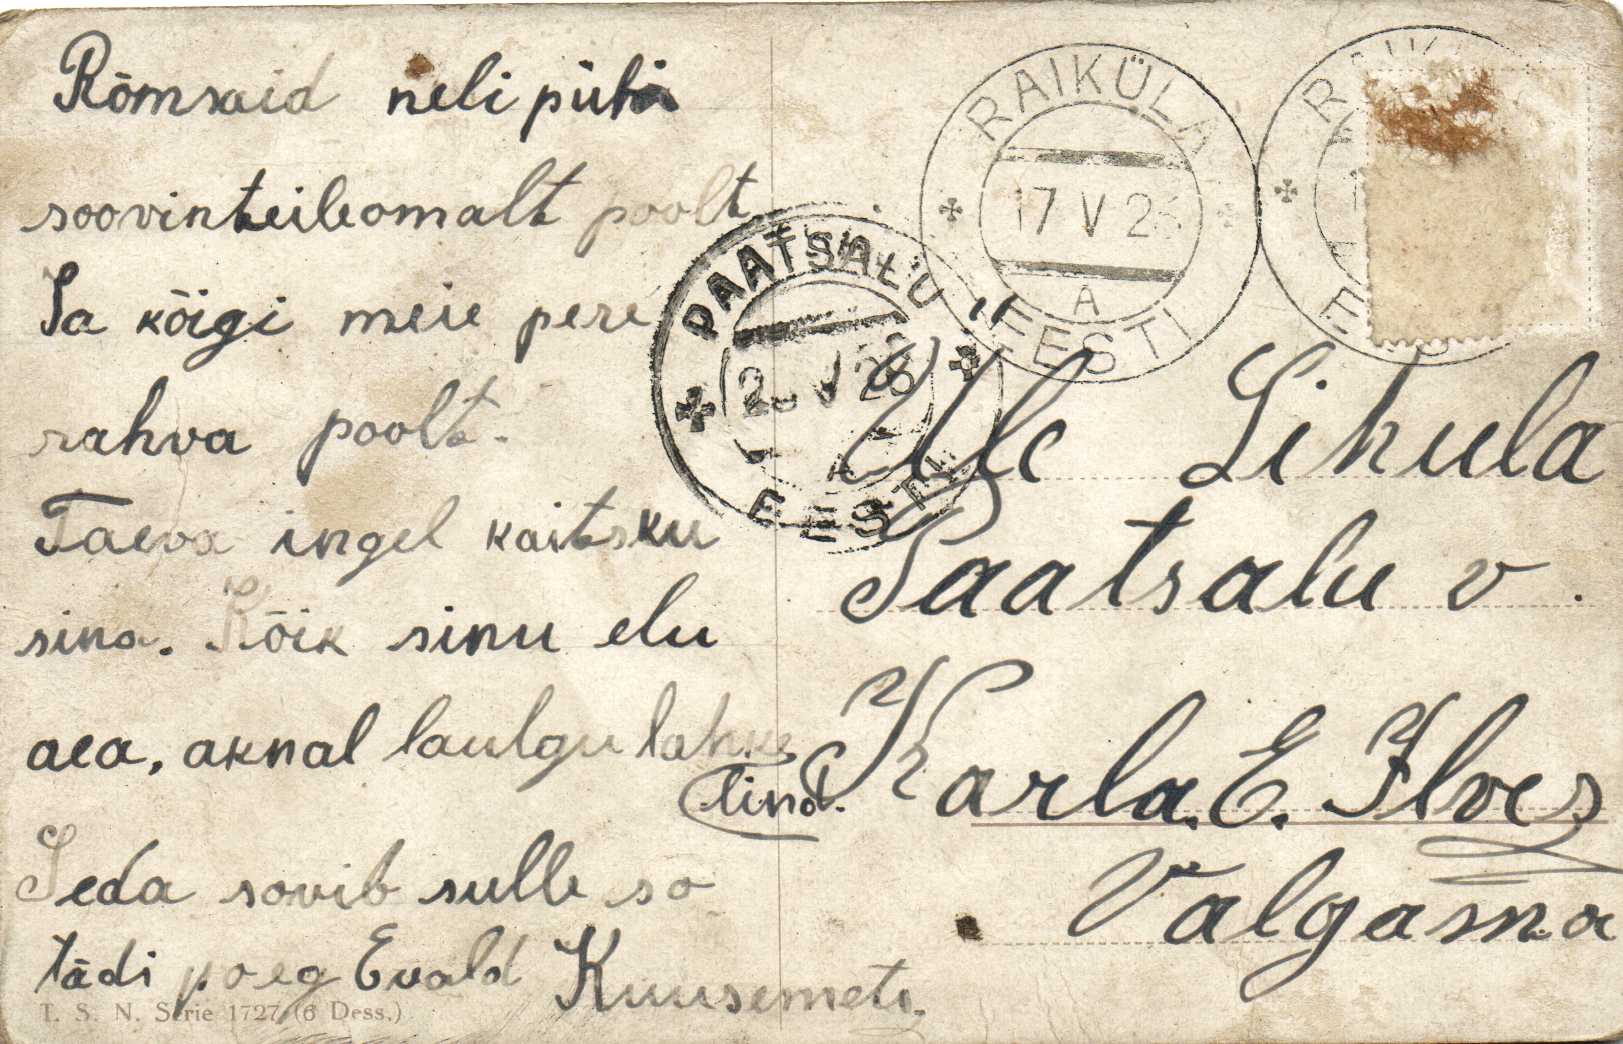 Rõmsaid nelipühi
soovinteileomalt poolt
Ja kõigi meie pere
rahva poolt.
Taeva ingel kaitsku
sina. Kõik sinu elu
aea, aknal laulgu lahke
lind.
Seda sovib sulle so
tädi poeg Evald Kuusemets.
T. S. N. Serie 1727 (6 Dess.)
RAIKÜLA
17 V 26
A
EESTI
PAATSALU
V 26
A
EESTI
Üle Lihula
Paatsalu v.
Karla. E. Ilves
Valgasma